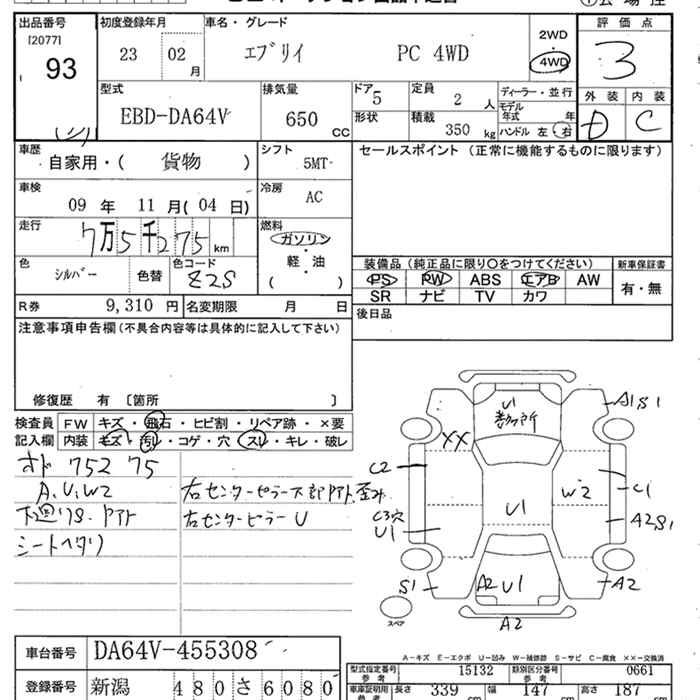 出品番号
[2077]
93
初度登録年月
23 02 月
車名・グレード
エブリイ PC 4WD
2WD
・
4WD
評価点
3
外装 内装
D C
型式
EBD-DA64V
排気量
650 CC
ドア 5
形状
定員
2 人
積載
350 kg
ディーラー・並行
モデル年式 年
ハンドル 左・右
車歴
自家用・( 貨物 )
シフト
5MT
セールスポイント (正常に機能するものに限ります)
車検
09 年 11 月 ( 04 日)
冷房
AC
走行
7万5千275 km
燃料
ガソリン
・
軽・油
( )
色
シルバー
色替
色コード
Z2S
装備品 (純正品に限り○をつけてください)
新車保証書
PS PW ABS エアB AW
有・無
SR ナビ TV カワ
R券 9,310 円
名変期限 月 日
後日品
注意事項申告欄 (不具合内容等は具体的に記入して下さい)
修復歴 有 〔箇所 〕
検査員
記入欄
FW キズ・飛石・ヒビ割・リペア跡・×要
内装 キズ・汚レ・コゲ・穴・スレ・キレ・破レ
オド 75275
A.U.W2
下廻りS.アト
シートヘタリ
右センターピラー下部アト歪み
右センターピラー U
U1
数ヶ所
A1S1
XX
C2
C3穴
U1
U1
W2
C1
A2S1
S1
A2U1
A2
A2
スペア
A-キズ E-エクボ U-凹み W-補修跡 S-サビ C-腐食 ××-交換済
車台番号
DA64V-455308
登録番号
新潟 480さ6080
型式指定番号
参考
15132
類別区分番号
参考
0661
車庫証明用
参考
長さ 339 幅 147 高さ 187